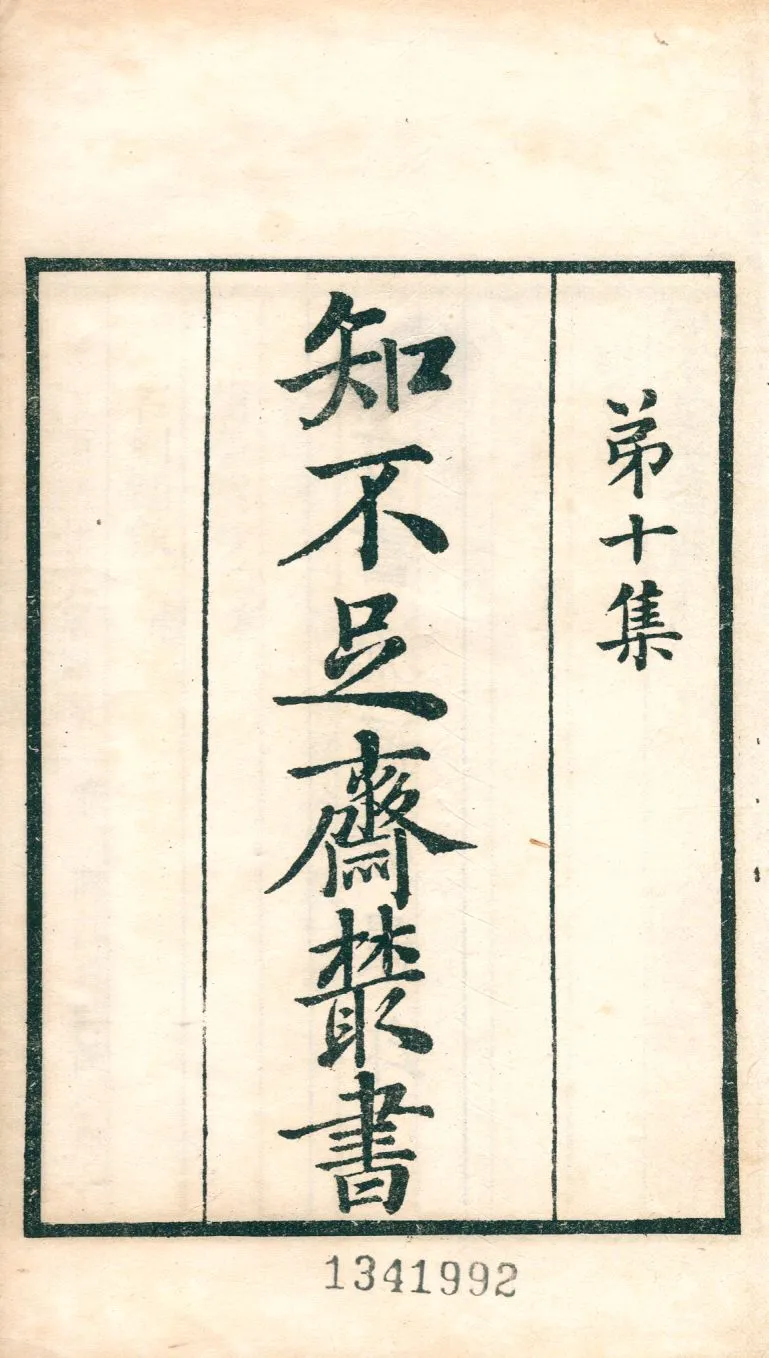 弟十集
知不足齋叢書
1341992